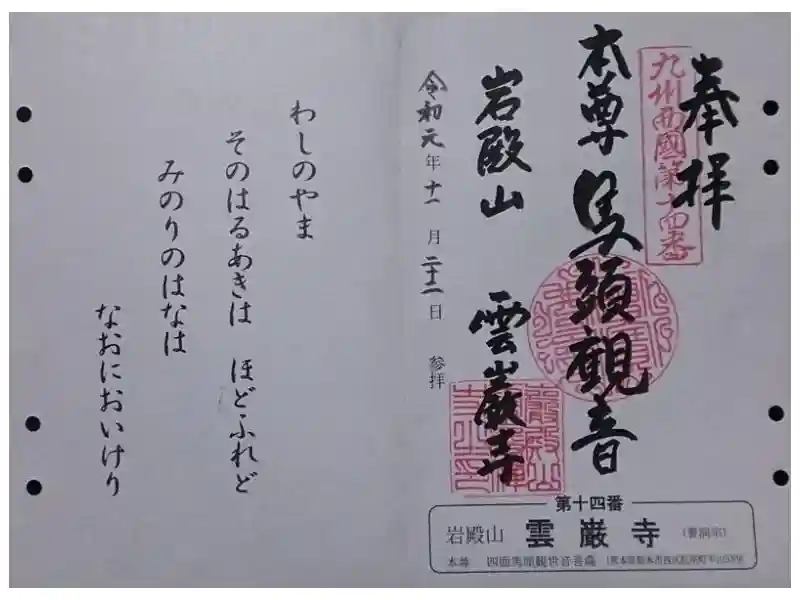 奉拝
九州西國第十四番
本尊 馬頭観音
岩殿山 雲巌寺
令和元年十一月二十二日 参拝
第十四番
岩殿山 雲巌寺 (曹洞宗)
本尊 四面馬頭観世音菩薩
わしのやま
そのはるあきは ほどふれど
みのりのはなは
なおにおいけり